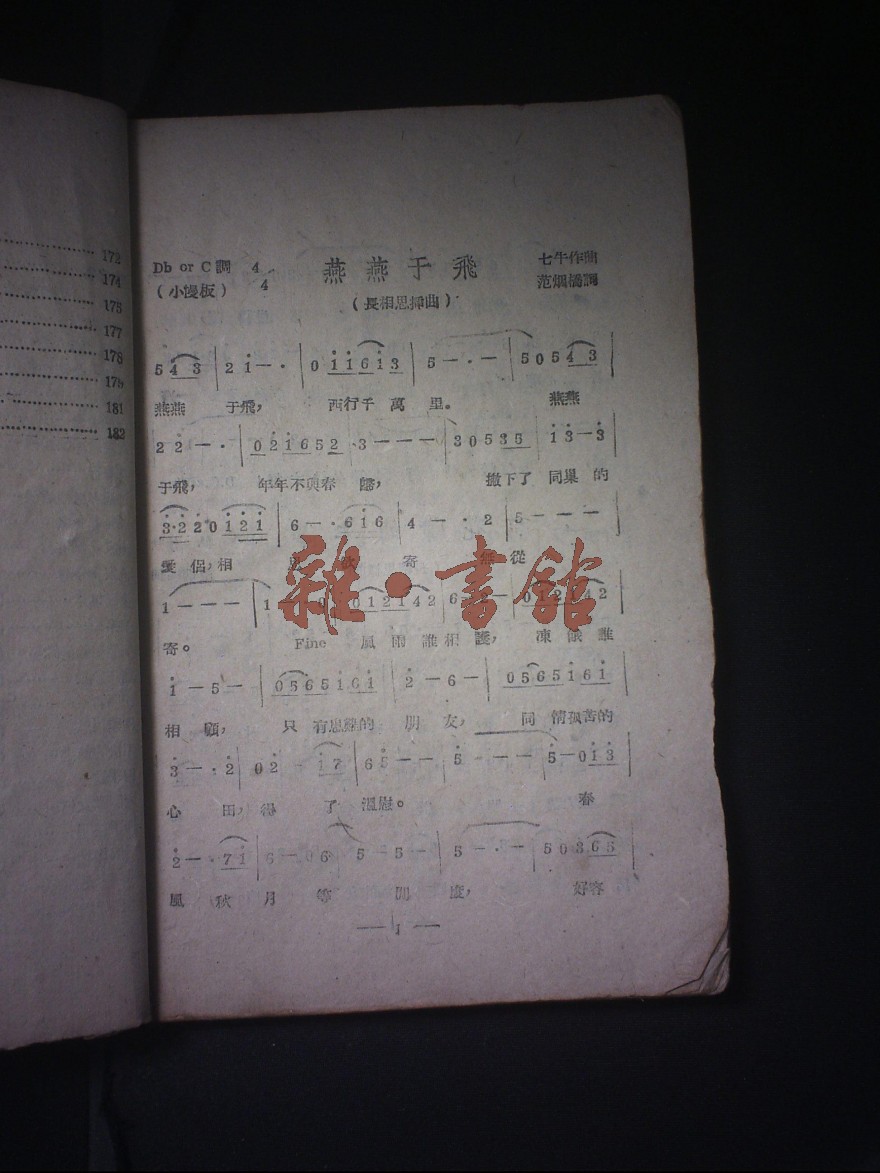 172
174
175
177
178
179
181
182
Db or C 調 4/4 燕燕于飛 七牛作曲
（小慢板） （長相思揷曲） 范烟橋詞
5 4 3 | 2 i — · | 0 i i 6 i 3 | 5 — · — | 5 0 5 4 3
燕燕 于飛， 西行千萬里。 燕燕
2 2 — · | 0 2 i 6 5 2 | 3 — — — | 3 0 5 3 5 | i 3 — 3
于飛， 年年不與春歸， 撇下了 同巢的
3 · 2 2 0 i 2 i | 6 — · 6 i 6 | 4 — · 2 | 5 — — —
愛侶，相 寄 無從
1 — — — | 1 0 1 2 1 4 2
寄。 Fine 風雨誰相護， 凍餓誰
i — 5 — | 0 5 6 5 i 6 i | 2 — 6 — | 0 5 6 5 i 6 i
相顧， 只有患難的 朋友， 同情孤苦的
3 — · 2 | 0 2 — i 7 | 6 5 — — | 5 — — — | 5 — 0 i 3
心田，得了溫慰。 春
2 — · 7 i | 6 — 0 6 | 5 — 5 — | 5 — · — | 5 0 3 6 5
風秋月等閒度， 好容
— 1 —
雜·書館